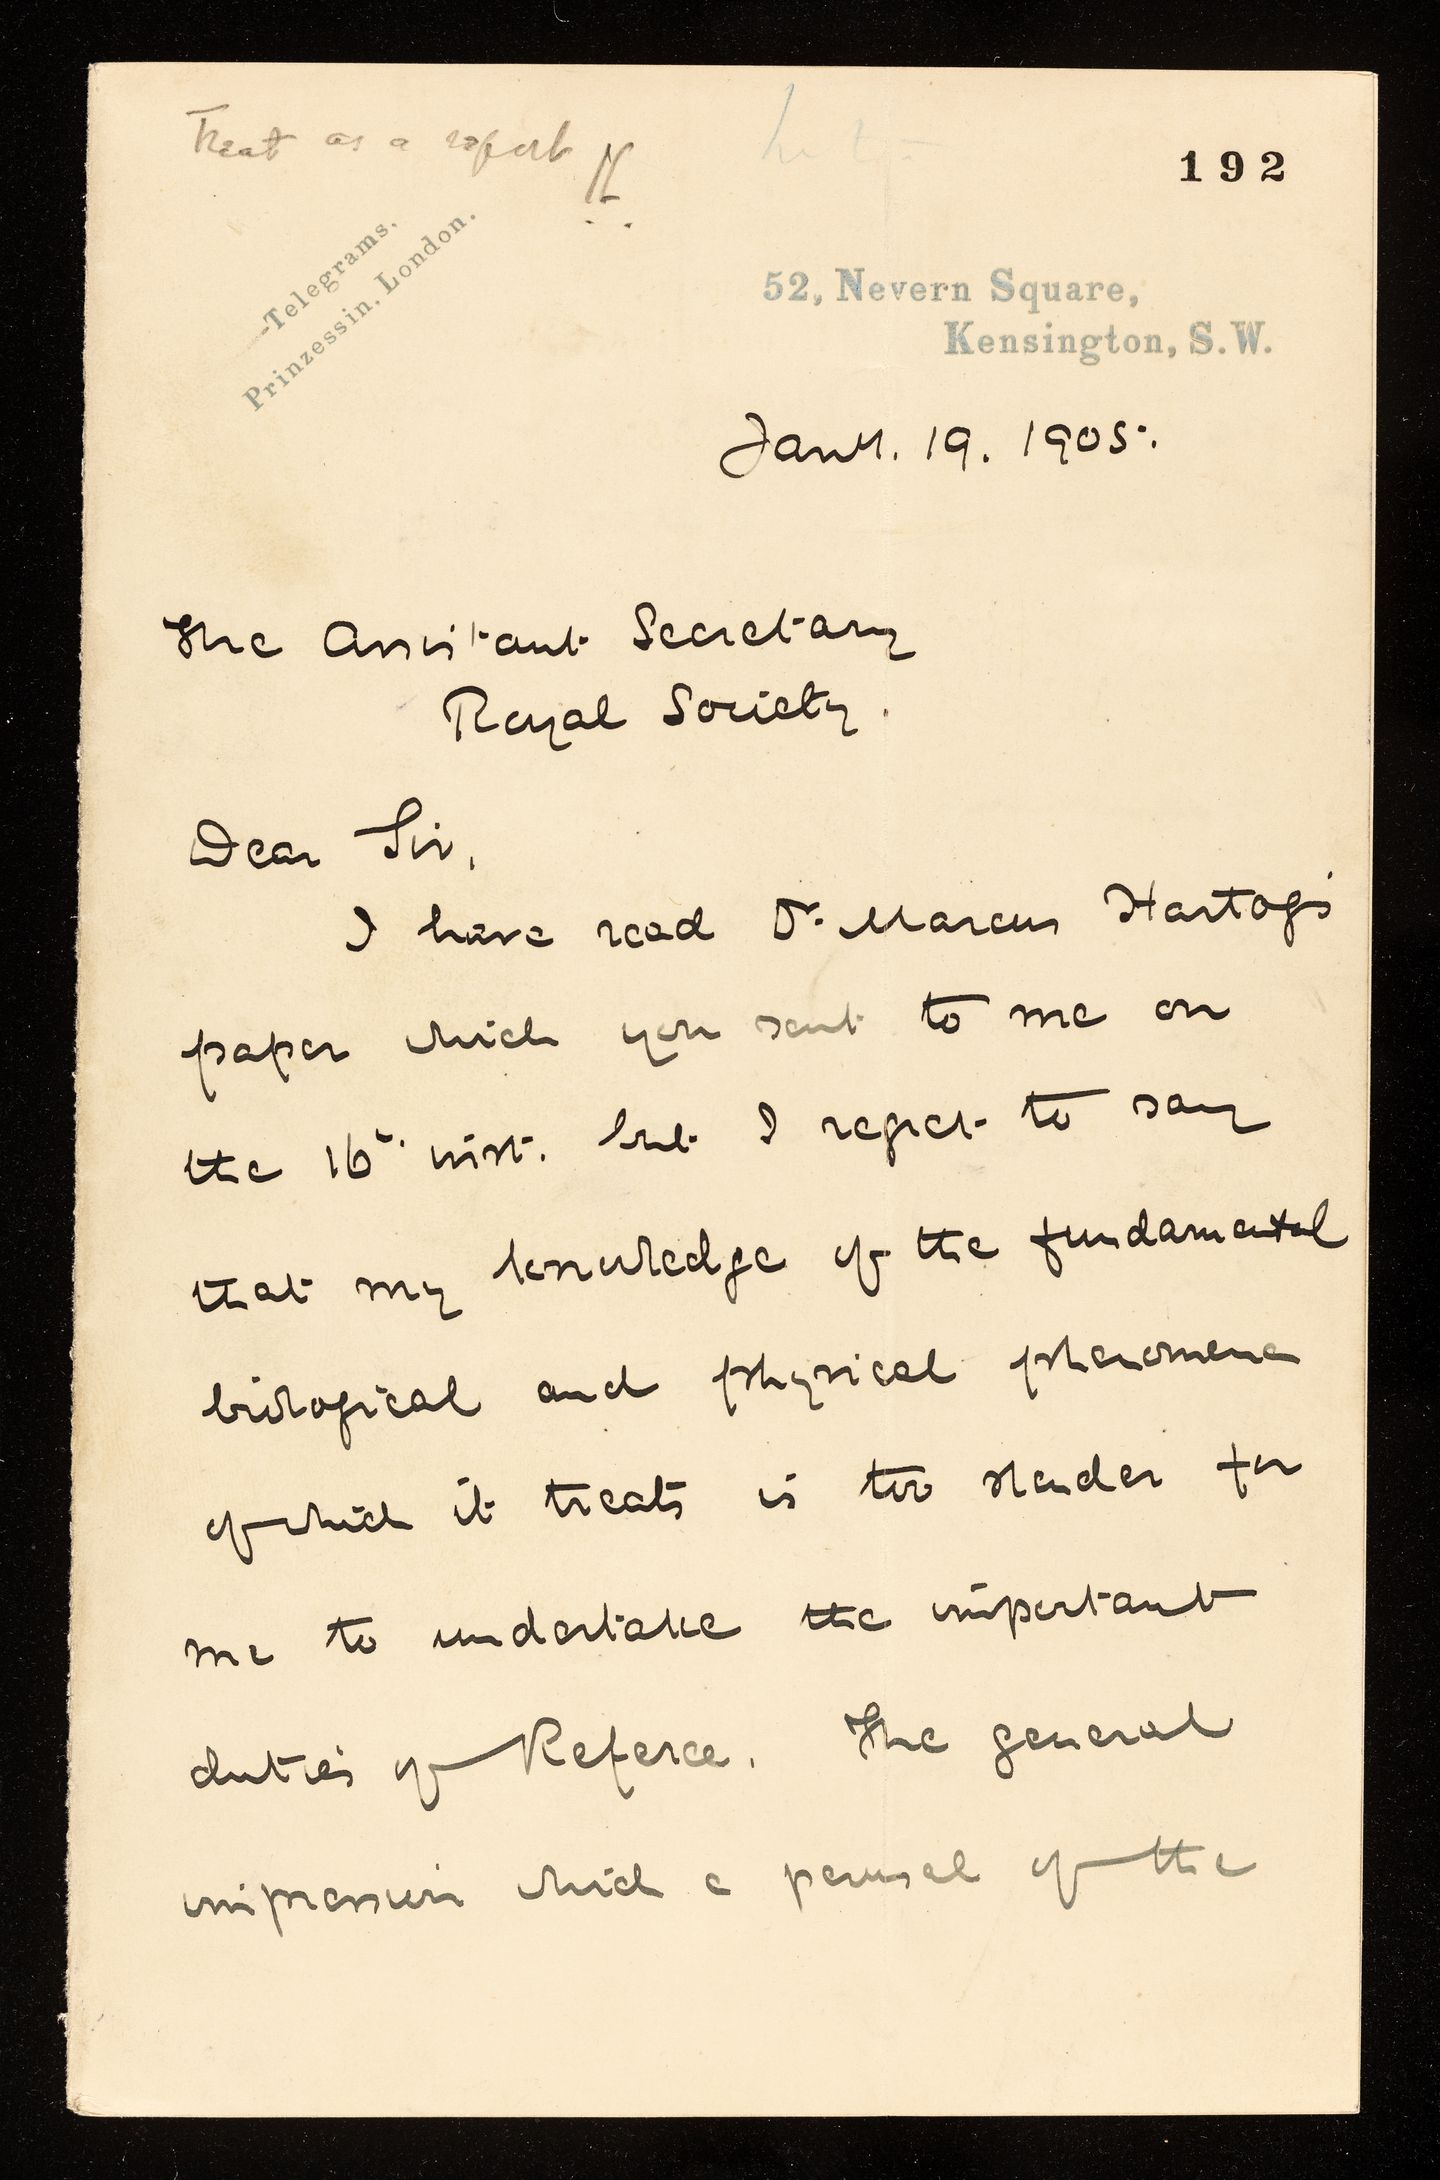 Treat as a report
192
Telegrams.
Prinzessin, London.
52, Nevern Square,
Kensington, S.W.
Jany. 19. 1905.
The Assistant Secretary
Royal Society.
Dear Sir,
I have read Dr. Marcus Hartog's
paper which you sent to me on
the 16th. inst. but I regret to say
that my knowledge of the fundamental
biological and physical phenomena
of which it treats is too slender for
me to undertake the important
duties of Referee. The general
impression which a perusal of the